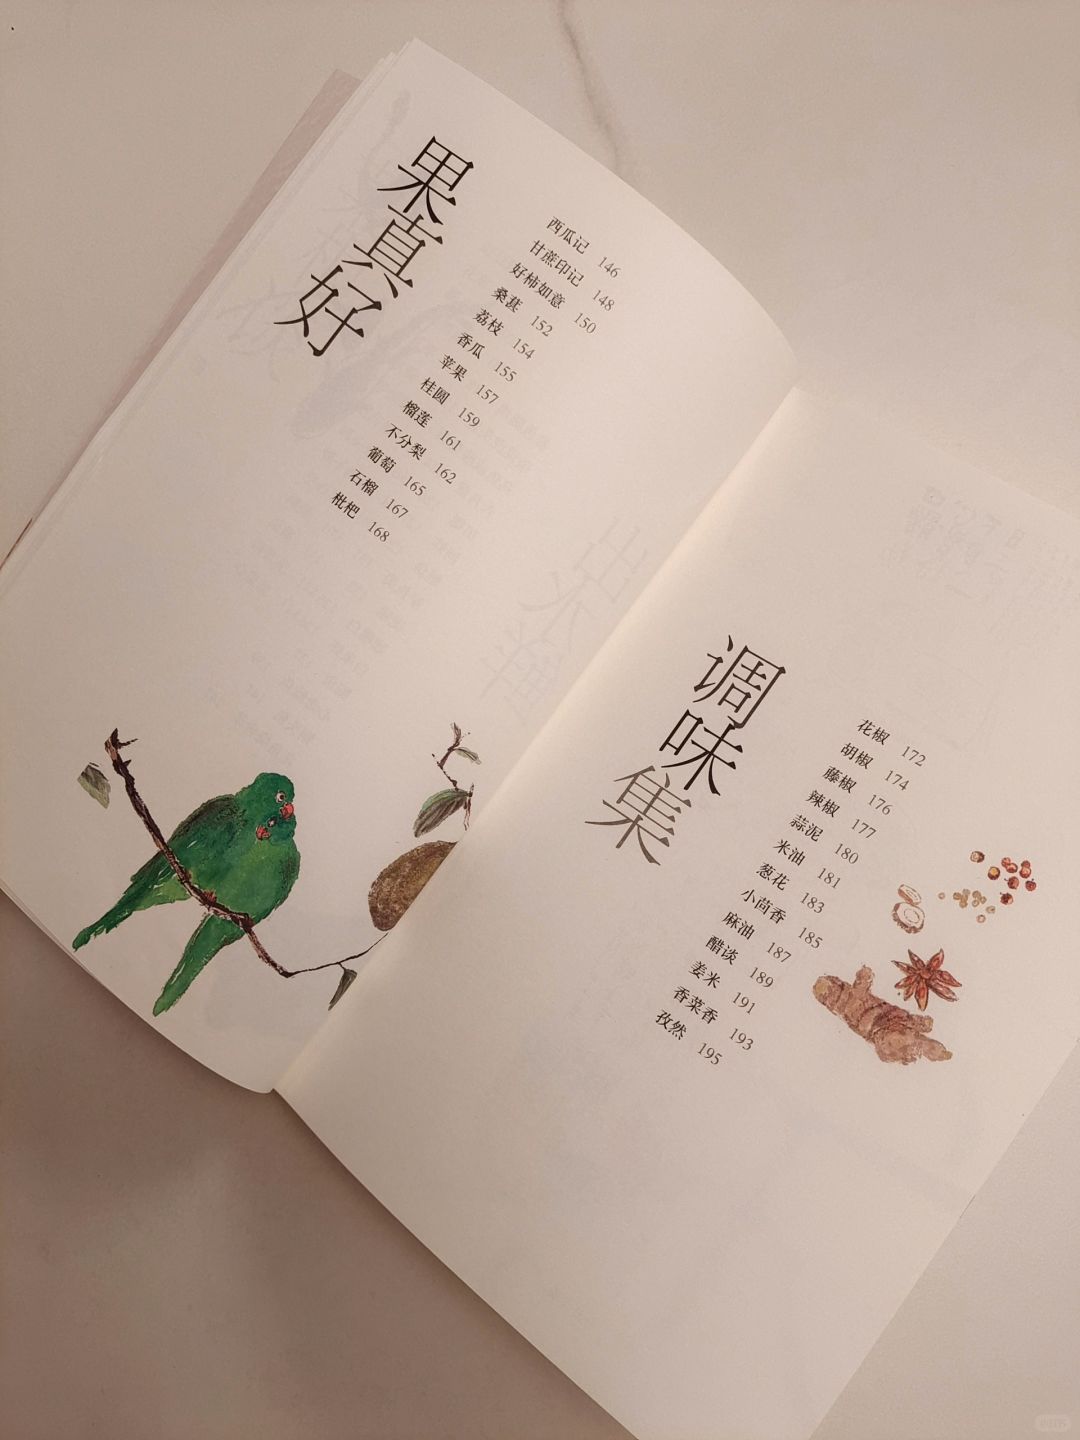 果真好
西瓜记 146
甘蔗印记 148
好柿如意 150
桑葚 152
荔枝 154
香瓜 155
苹果 157
桂圆 159
榴莲 161
不分梨 162
葡萄 165
石榴 167
枇杷 168
调味集
花椒 172
胡椒 174
藤椒 176
辣椒 177
蒜泥 180
米油 181
葱花 183
小茴香 185
麻油 187
醋谈 189
姜米 191
香菜香 193
孜然 195